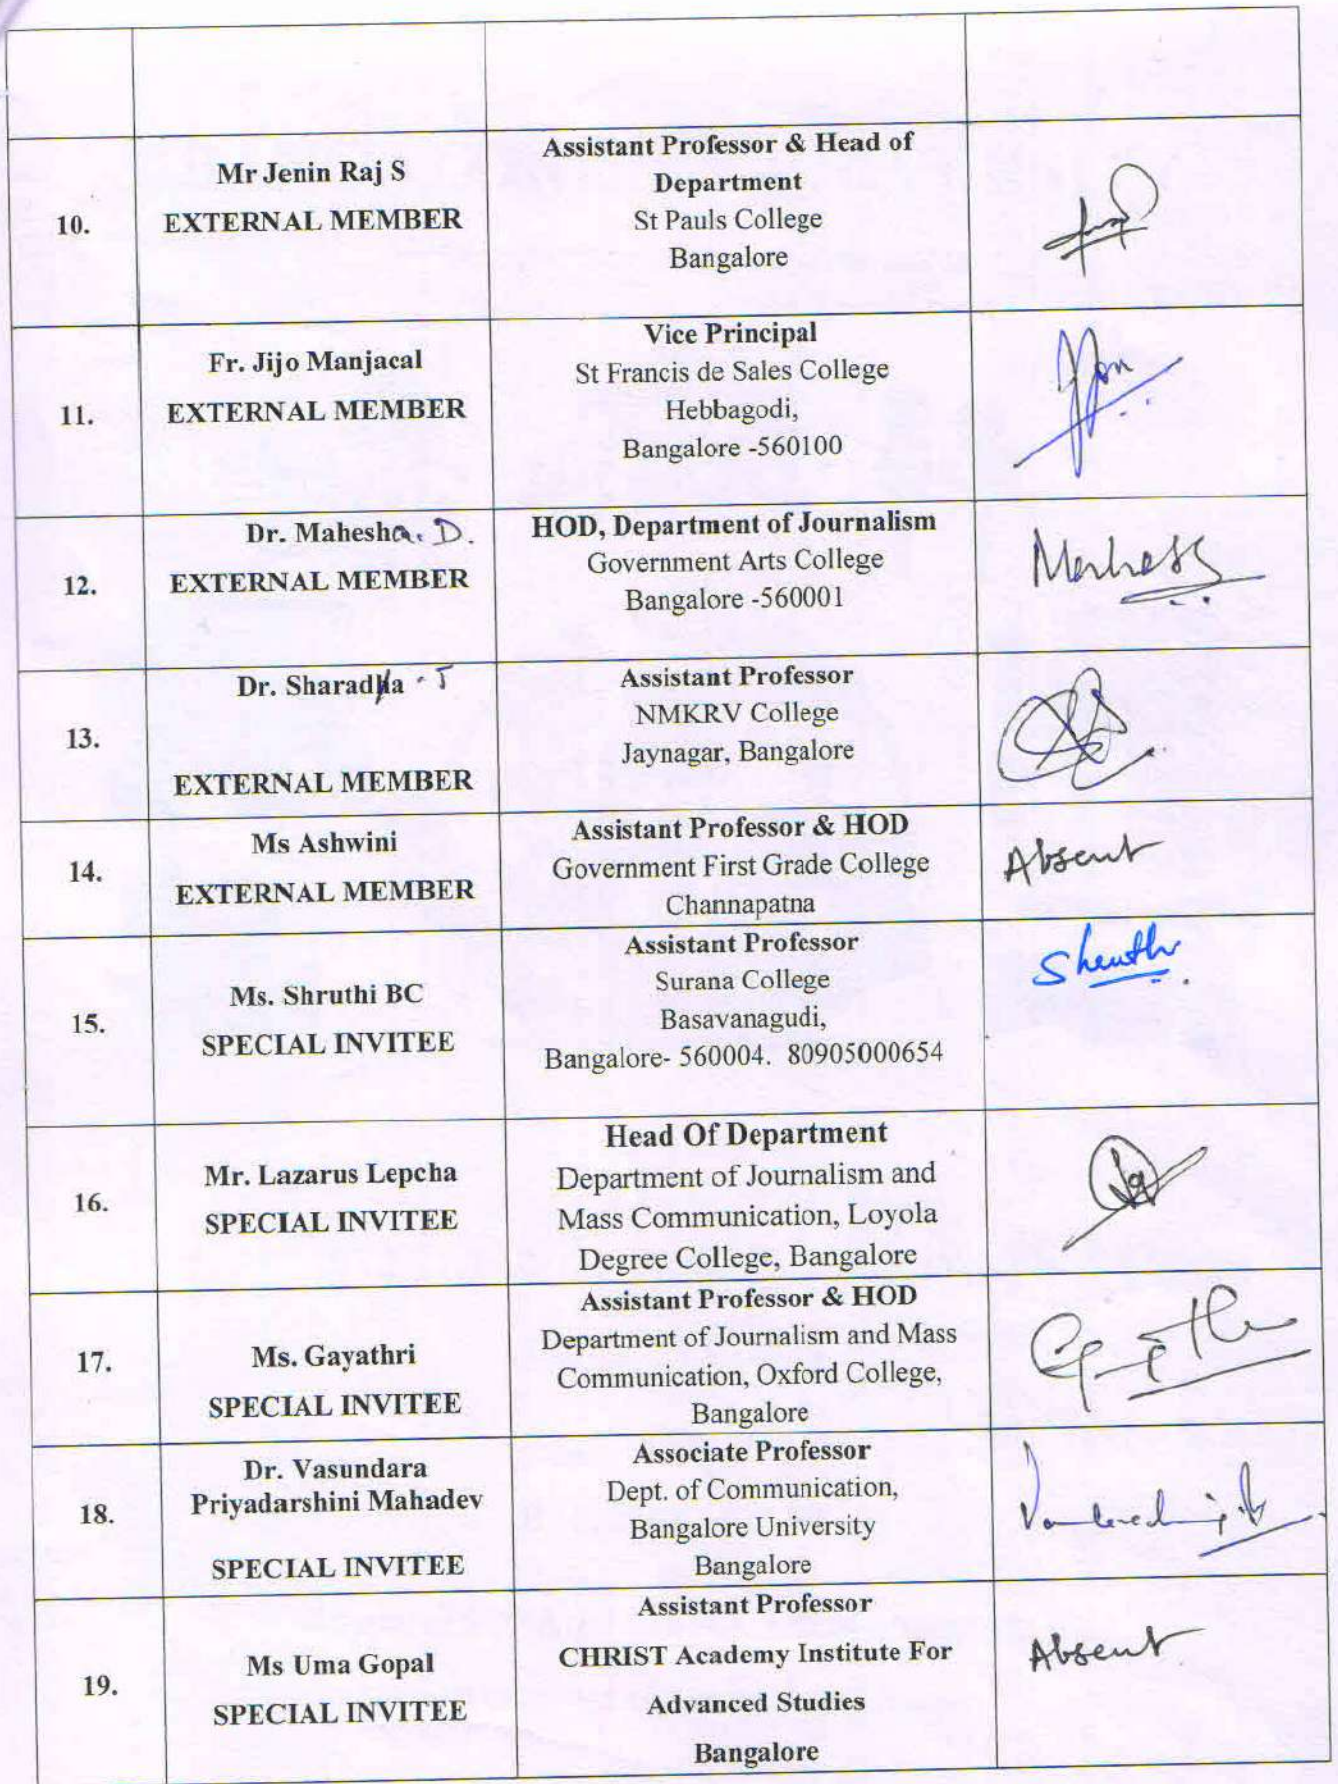 10.
Mr Jenin Raj S
EXTERNAL MEMBER
Assistant Professor & Head of
Department
St Pauls College
Bangalore
11.
Fr. Jijo Manjacal
EXTERNAL MEMBER
Vice Principal
St Francis de Sales College
Hebbagodi,
Bangalore -560100
12.
Dr. Mahesha. D.
EXTERNAL MEMBER
HOD, Department of Journalism
Government Arts College
Bangalore -560001
13.
Dr. Sharadha - J
EXTERNAL MEMBER
Assistant Professor
NMKRV College
Jaynagar, Bangalore
14.
Ms Ashwini
EXTERNAL MEMBER
Assistant Professor & HOD
Government First Grade College
Channapatna
Absent
15.
Ms. Shruthi BC
SPECIAL INVITEE
Assistant Professor
Surana College
Basavanagudi,
Bangalore- 560004. 80905000654
Shruthi
16.
Mr. Lazarus Lepcha
SPECIAL INVITEE
Head Of Department
Department of Journalism and
Mass Communication, Loyola
Degree College, Bangalore
17.
Ms. Gayathri
SPECIAL INVITEE
Assistant Professor & HOD
Department of Journalism and Mass
Communication, Oxford College,
Bangalore
18.
Dr. Vasundara
Priyadarshini Mahadev
SPECIAL INVITEE
Associate Professor
Dept. of Communication,
Bangalore University
Bangalore
19.
Ms Uma Gopal
SPECIAL INVITEE
Assistant Professor
CHRIST Academy Institute For
Advanced Studies
Bangalore
Absent